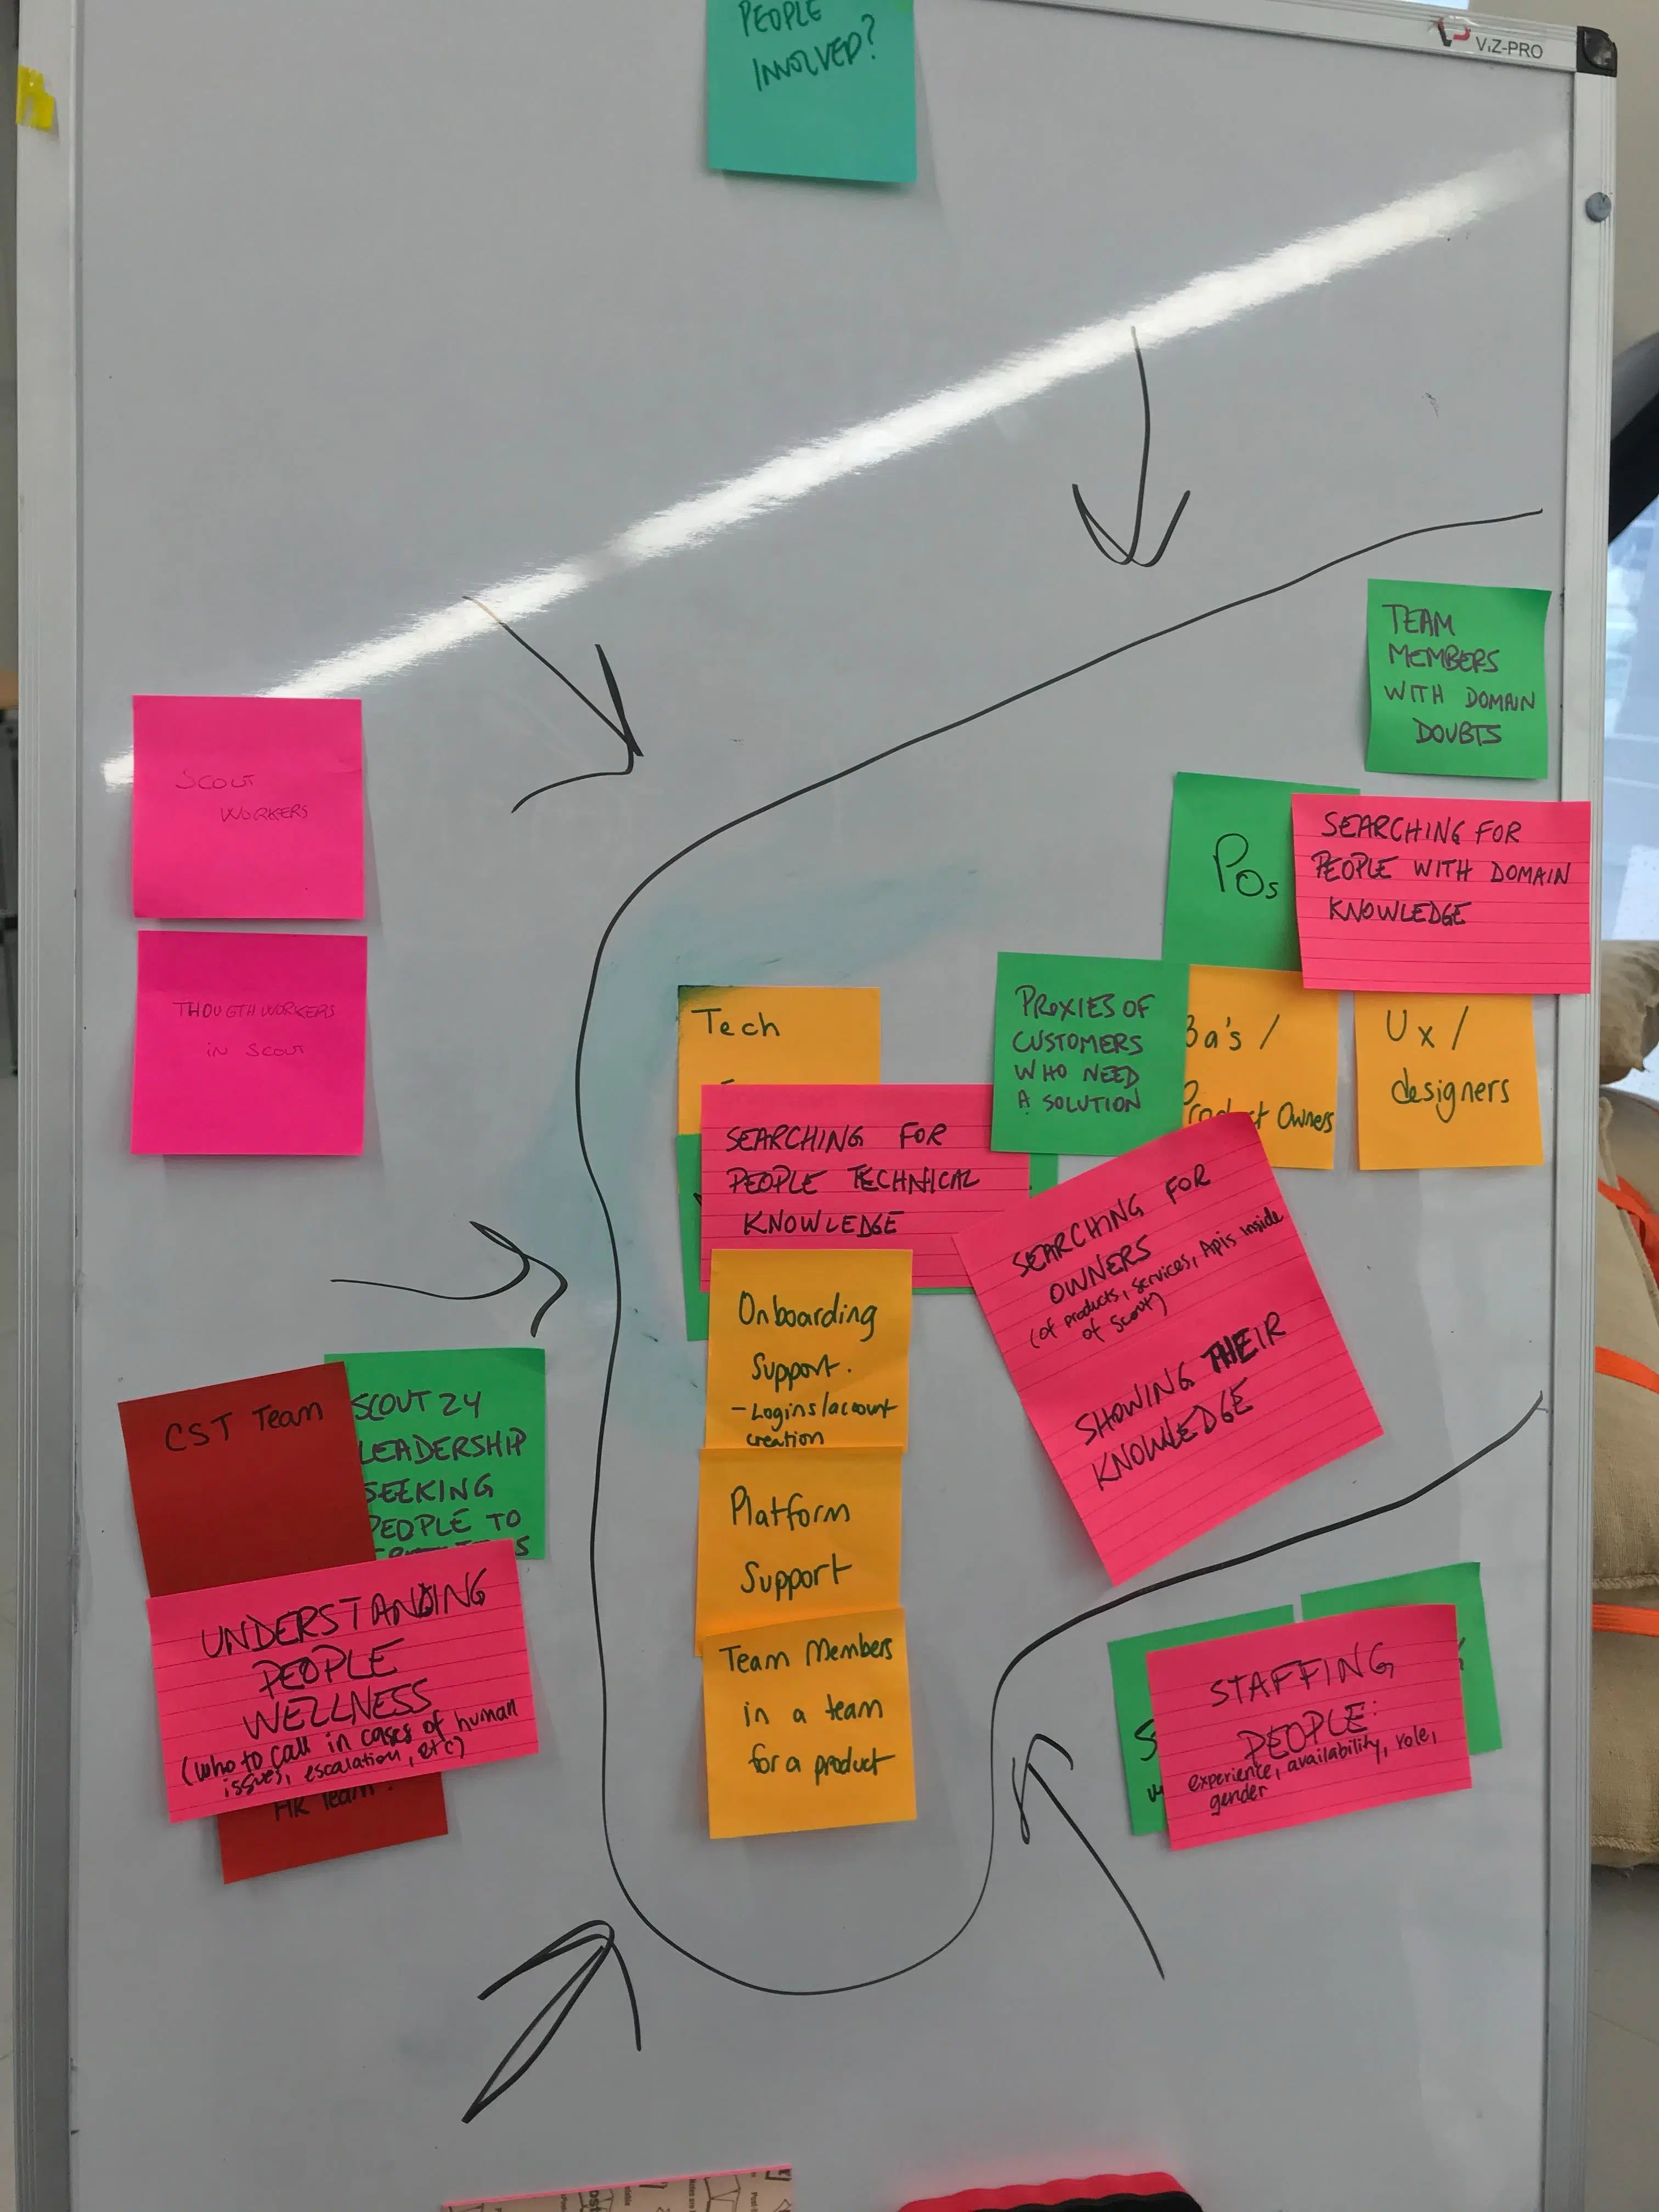 PEOPLE
INVOLVED?
ViZ-PRO
TEAM
MEMBERS
WITH DOMAIN
DOUBTS
SCOUT
WORKERS
POs
SEARCHING FOR
PEOPLE WITH DOMAIN
KNOWLEDGE
THOUGTHWORKERS
in SCOUT
Tech
PROXIES OF
CUSTOMERS
WHO NEED
A SOLUTION
Ba's /
Product Owners
Ux /
designers
SEARCHING FOR
PEOPLE TECHNICAL
KNOWLEDGE
SEARCHING FOR
OWNERS
(of products, services, Apis inside
of Scout)
SHOWING THEIR
KNOWLEDGE
Onboarding
Support.
- Logins/account
creation
Platform
Support
Team Members
in a team
for a product
CST Team
SCOUT 24
LEADERSHIP
SEEKING
PEOPLE TO
UNDERSTANDING
PEOPLE
WELLNESS
(who to call in cases of human
issues, escalation, etc)
HR Team
STAFFING
PEOPLE:
experience, availability, role,
gender